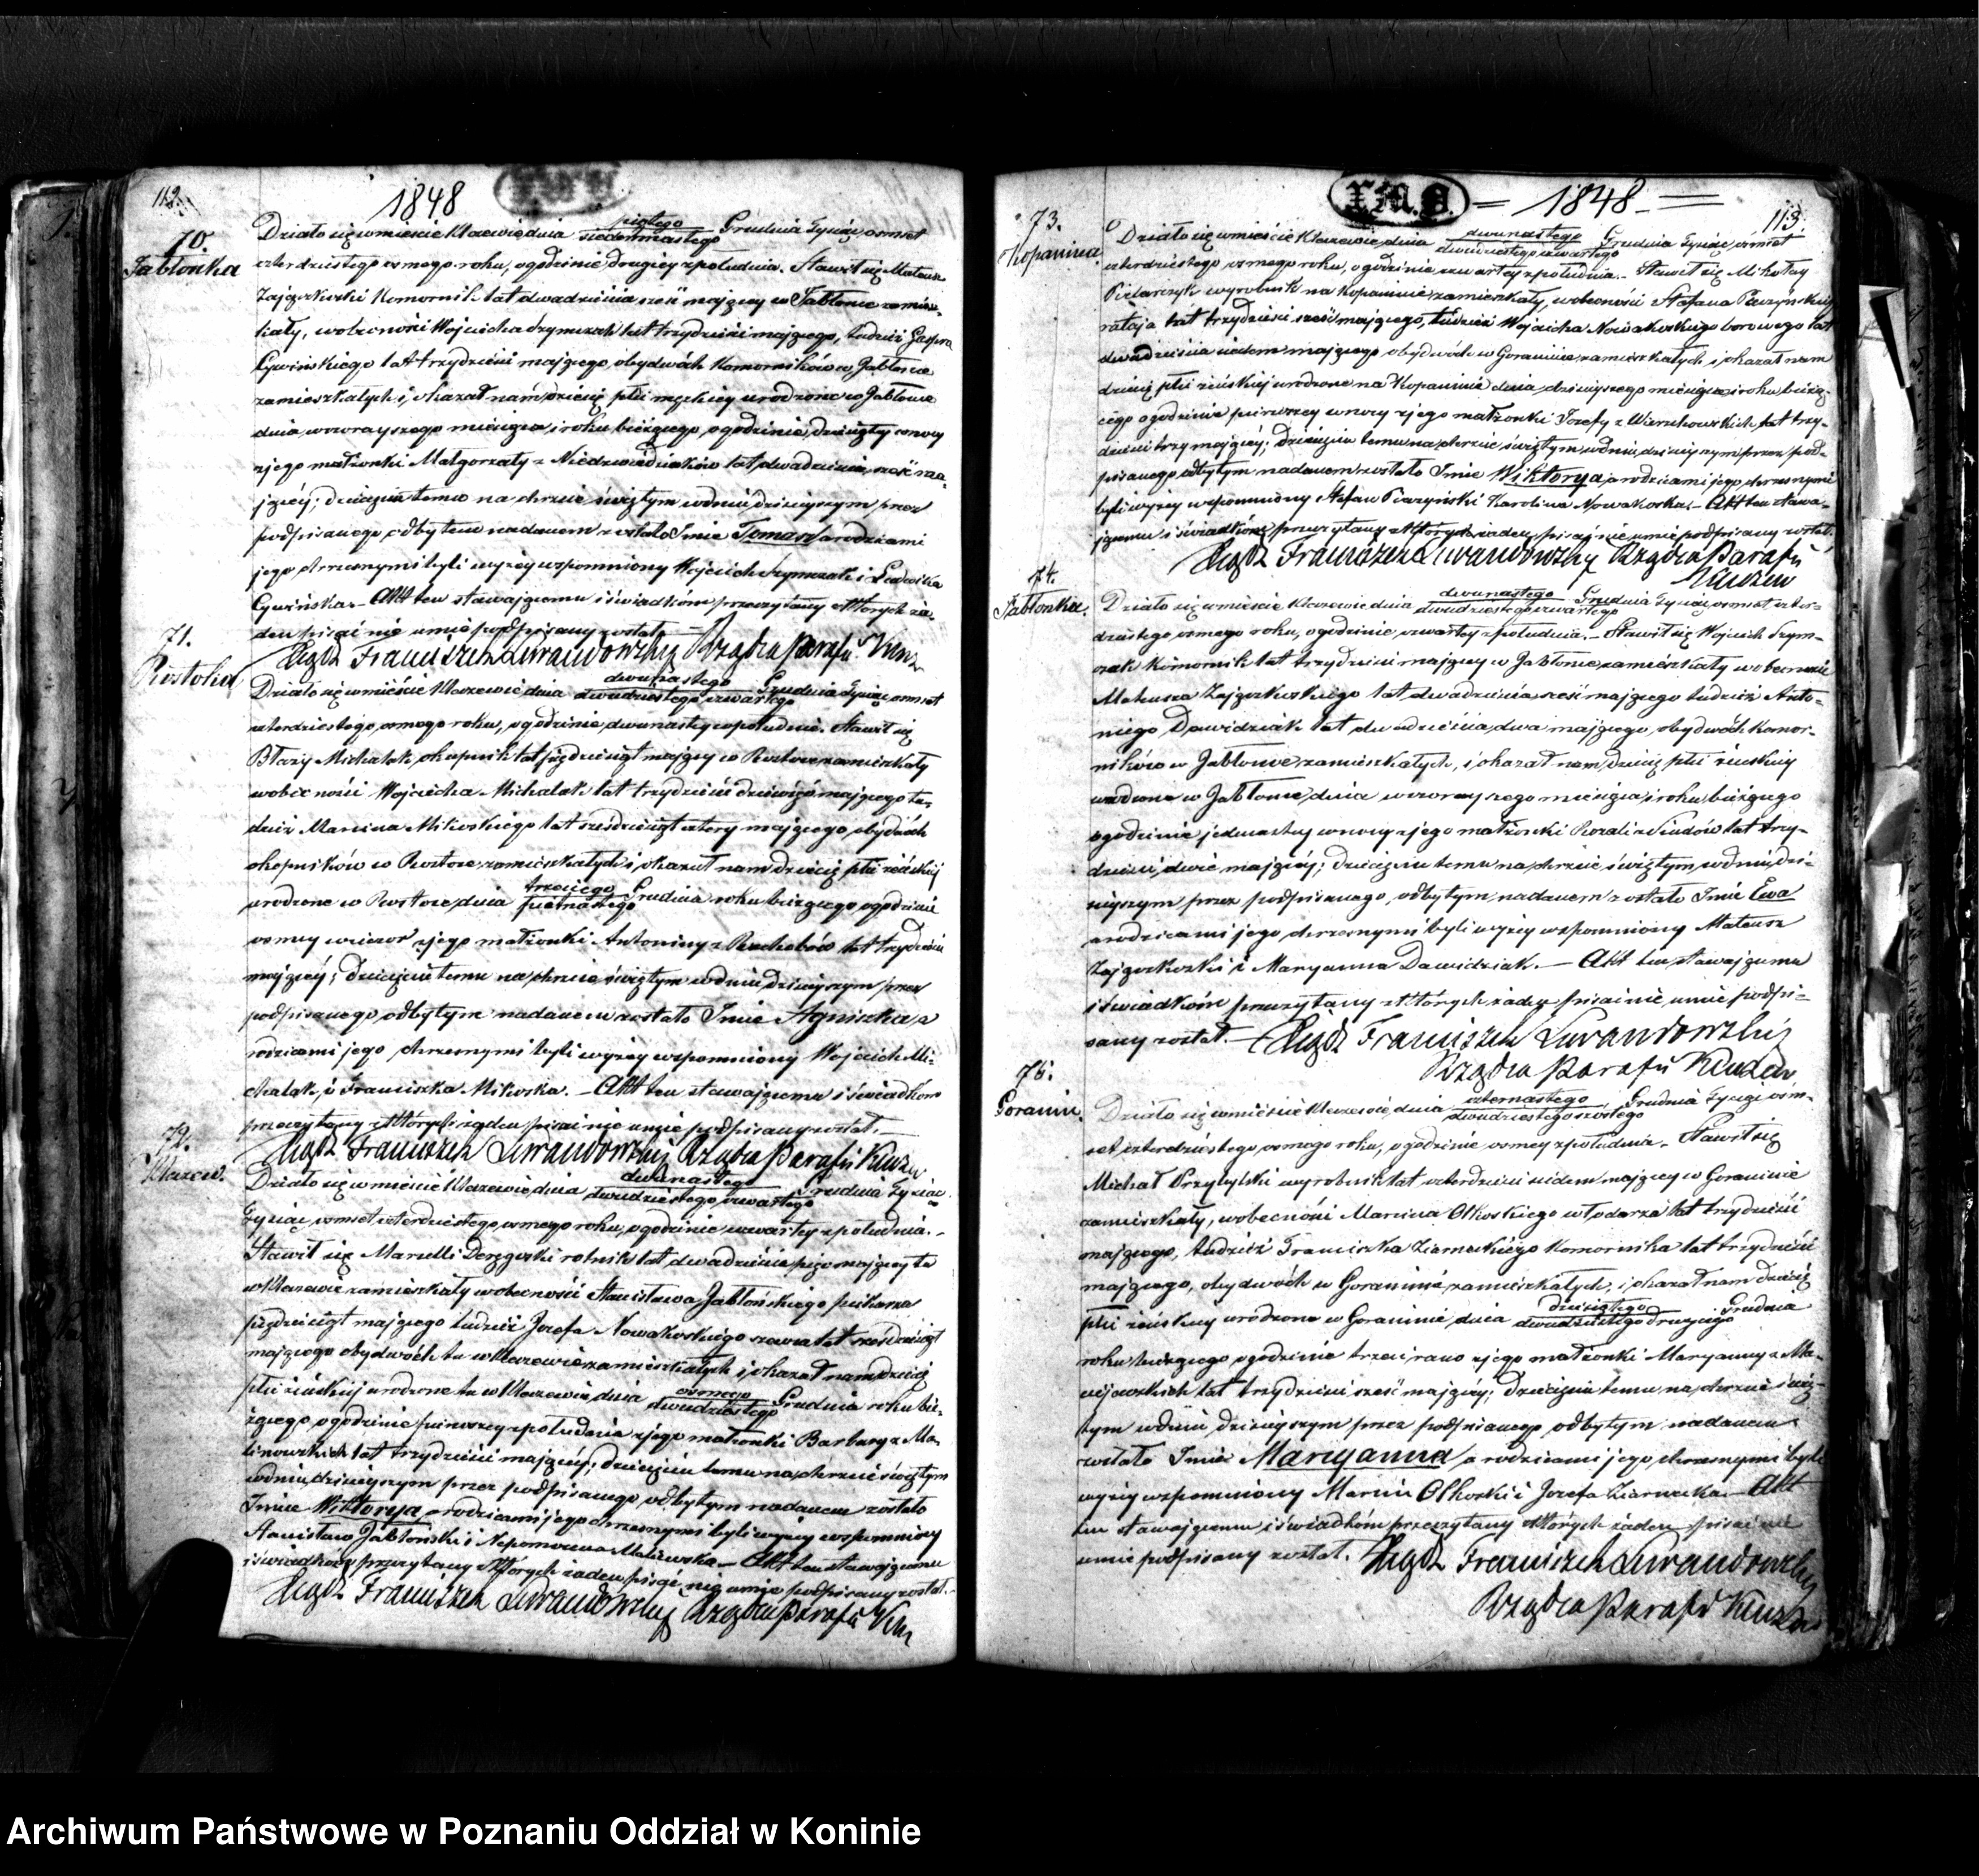 112.
1848
70.
Jabłonka
Działo się w mieście Kleczewie dnia piątego/siedemnastego Grudnia Tysiąc osmset
czterdziestego osmego roku, o godzinie drugiey z południa. Stawił się Mateusz
Zajączkoski Komornik lat dwadzieścia sześć mający w Jabłonce zamiesz-
kały, w obecności Wojciecha Szymczak lat trzydzieści mającego, tudzież
Cywińskiego lat trzydzieści mającego obydwóch Komorników w Jabłonce
zamieszkałych i okazał nam dziecię płci męzkiey urodzone w Jabłonce
dnia wczorayszego miesiąca i roku bieżącego o godzinie dziesiątey w nocy
z jego małżonki Małgorzaty z Niedzwiedziaków lat dwadzieścia sześć ma-
jącéy; dziecięciu temu na chrzcie świętym w dniu dzisieyszym przez
podpisanego odbytem nadanem zostało Imie Tomasz a rodzicami
jego chrzesnymi byli wyżéy wspomniony Wojciech Szymczak i Ludwika
Cywińska. – Akt ten stawającemu i świadkóm przeczytany z których ża-
den pisać nie umie podpisany został. –
Xiądz Franciszek Lewandowski Rządca Parafii
71.
Roztoka
Działo się w mieście Kleczewie dnia dwunastego/dwudziestego czwartego Grudnia Tysiąc osmset
czterdziestego osmego roku, o godzinie dwunastey w południe. Stawił się
Błażj Michalak, okupnik lat pięćdziesiąt mający w Roztoce zamieszkały
w obecności Wojciecha Michalak lat trzydzieści dziewięć mającego tu-
dzież Marcina Milewskiego lat sześdziesiąt cztery mającego obydwóch
okupników w Roztoce zamieszkałych i okazał nam dziecię płci żeńskiej
urodzone w Roztoce dnia trzeciego/piętnastego Grudnia roku bieżącego o godzinie
osmey wieczor z jego małżonki Antoniny z lat trzydzieści
mającéy; dziecięciu temu na chrzcie świętym w dniu dzisieyszym przez
podpisanego odbytym nadanem zostało Imie Agnieszka, a
rodzicami jego chrzesnymi byli wyżéy wspomniony Wojciech Mi-
chalak, i Franciszka Milewska. – Akt ten stawającemu i świadkóm
przeczytany z których żaden pisać nie umie podpisany został. –
Xiądz Franciszek Lewandowski Rządca Parafii
72.
Kleczew.
Działo się w mieście Kleczewie dnia dwunastego/dwudziestego czwartego Grudnia Tysiąc
Tysiąc osmset czterdziestego osmego roku, o godzinie czwartey z południa. –
Stawił się Marcelli rolnik lat dwadzieścia pięć mający tu
w Kleczewie zamieszkały w obecności Stanisława Jabłońskiego piekarza
pięćdziesiąt mającego tudzież Jozefa Nowakoskiego szewca lat sześdziesiąt
mającego obydwóch tu w Kleczewie zamieszkałych i okazał nam dziecię
płci żeńskiej urodzone tu w Kleczewie dnia osmego/dwudziestego Grudnia roku bie-
żącego o godzinie pierwszey z południa z jego małżonki Barbary z Ma-
linowskich lat trzydzieści mającéy; dziecięciu temu na chrzcie świętym
w dniu dzisieyszym przez podpisanego odbytym nadanem zostało
Imie Wiktorya, a rodzicami jego chrzesnymi byli wyżéy wspomniony
Stanisław Jabłoński i Nepomucena – Akt ten stawającemu
i świadkóm przeczytany z których żaden pisać nie umie podpisany został. –
Xiądz Franciszek Lewandowski Rządca Parafii
= 1848 =
113.
73.
Kopanina.
Działo się w mieście Kleczewie dnia dwunastego/dwudziestego czwartego Grudnia Tysiąc osmset
czterdziestego osmego roku, o godzinie czwartey z południa. – Stawił się Mikołay
wyrobnik na Kopaninie zamieszkały, w obecności Stefana
rataja lat trzydzieści sześć mającego, tudzież Wojciecha Nowakoskiego borowego lat
dwadzieścia siedem mającego obydwóch w Goraninie zamieszkałych i okazał nam
dziecię płci żeńskiej urodzone na Kopaninie dnia dzisieyszego miesiąca i roku bieżą-
cego o godzinie pierwszey w nocy z jego małżonki Jozefy z lat trzy-
dzieści trzy mającéy; dziecięciu temu na chrzcie świętym w dniu dzisieyszym przez pod-
pisanego odbytym nadanem zostało Imie Wiktorya, a rodzicami jego chrzesnymi
byli wyżéy wspomniony Stefan i Karolina Nowakoska. – Akt ten stawa-
jącemu i świadkóm przeczytany z których żaden pisać nie umie podpisany został.
Xiądz Franciszek Lewandowski Rządca Parafii
Kleczew
74.
Jabłonka.
Działo się w mieście Kleczewie dnia dwunastego/dwudziestego czwartego Grudnia Tysiąc osmset czter-
dziestego osmego roku, o godzinie czwartey z południa. – Stawił się Wojciech Szym-
czak Komornik lat trzydzieści mający w Jabłonce zamieszkały w obecności
Mateusza Zajączkoskiego lat dwadzieścia sześć mającego tudzież Anto-
niego Dawidziak lat dwadzieścia dwa mającego, obydwóch Komor-
ników w Jabłonce zamieszkałych, i okazał nam dziecię płci żeńskiey
urodzone w Jabłonce dnia wczorayszego miesiąca i roku bieżącego
o godzinie jedenastey w nocy z jego małżonki Rozalii z lat trzy-
dzieści dwie mającéy; dziecięciu temu na chrzcie świętym w dniu dzi-
sieyszym przez podpisanego, odbytym, nadanem zostało Imie Ewa
a rodzicami jego chrzesnymi byli wyżéy wspomniony Mateusz
Zajączkoski i Maryanna Dawidziak. – Akt ten stawającemu
i świadkóm przeczytany z których żaden pisać nie umie podpi-
sany został. – Xiądz Franciszek Lewandowski
Rządca Parafii Kleczew
75.
Goranin.
Działo się w mieście Kleczewie dnia czternastego/dwudziestego szóstego Grudnia Tysiąc osm-
set czterdziestego osmego roku, o godzinie osmey z południa. – Stawił się
Michał Przybylski wyrobnik lat czterdzieści siedem mający w Goraninie
zamieszkały, w obecności Marcina Olkoskiego włodarza lat trzydzieści
mającego, tudzież Franciszka Ziarneckiego Komornika lat trzydzieści
mającego, obydwóch w Goraninie zamieszkałych, i okazał nam dziecię
płci żeńskiey urodzone w Goraninie dnia dziesiątego/dwudziestego drugiego Grudnia
roku bieżącego o godzinie trzeci rano z jego małżonki Maryanny z Ma-
ciejewskich lat trzydzieści sześć mającéy; dziecięciu temu na chrzcie świę-
tym w dniu dzisieyszym przez podpisanego odbytym nadanem
zostało Imie Maryanna, a rodzicami jego chrzesnymi byli
wyżéy wspomniony Marcin Olkoski i Jozefa Ziarnecka. – Akt
ten stawającemu i świadkóm przeczytany z których żaden pisać nie
umie podpisany został. Xiądz Franciszek Lewandowski
Rządca Parafii Kleczew
Archiwum Państwowe w Poznaniu Oddział w Koninie